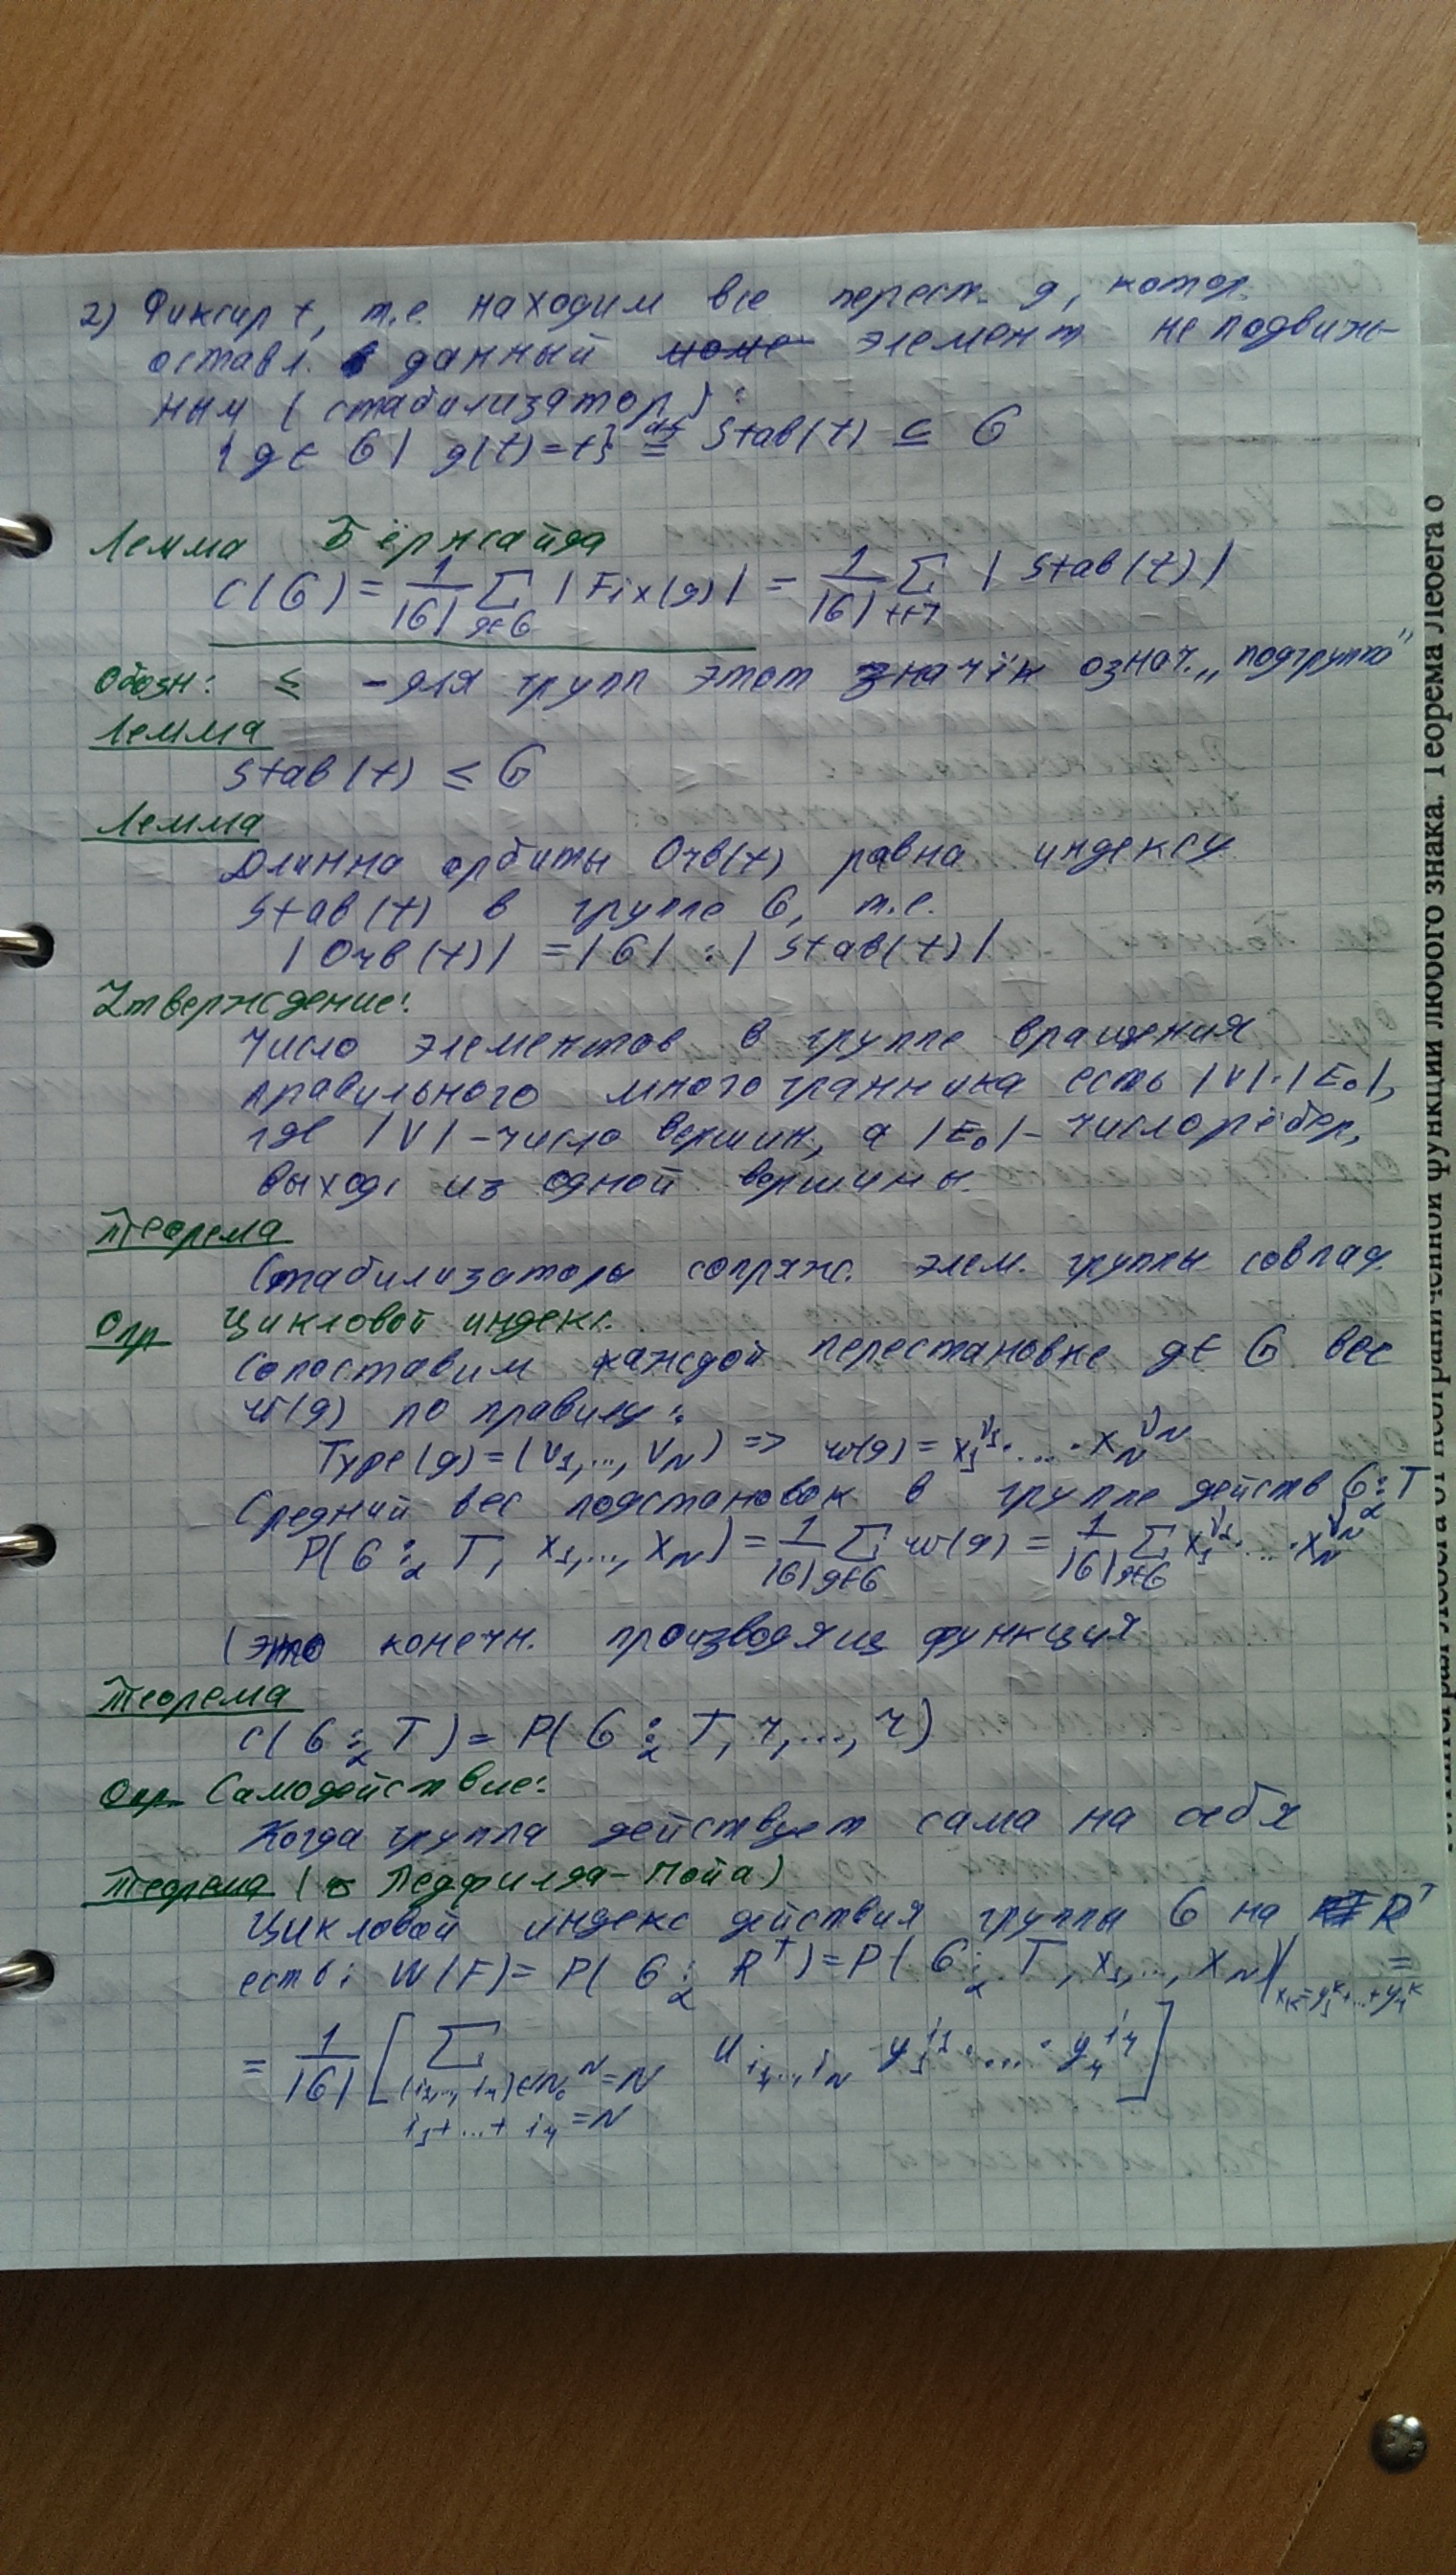 2) Фиксир t, т.е. находим все перест. g, котор.
оставл. данный элемент неподвиж-
ным (стабилизатор):
{g ∈ G | g(t)=t} ≝ Stab(t) ⊆ G
Лемма Бёрнсайда
C(G) = 1/|G| Σ_{g∈G} |Fix(g)| = 1/|G| Σ_{t∈T} |Stab(t)|
Обозн: ≤ - для групп этот значёк означ. „подгруппа"
Лемма
Stab(t) ≤ G
Лемма
Длинна орбиты Orb(t) равна индексу
Stab(t) в группе G, т.е.
|Orb(t)| = |G| : |Stab(t)|
Утверждение:
Число элементов в группе вращения
правильного многогранника есть |V|·|E₀|,
где |V| - число вершин, а |E₀| - число рёбер,
выход. из одной вершины.
Теорема
Стабилизаторы сопряж. элем. группы совпад.
Опр Цикловой индекс.
Сопоставим каждой перестановке g ∈ G вес
w(g) по правилу:
Type(g) = (ν₁,..., ν_N) => w(g) = x₁^{ν₁}·...·x_N^{ν_N}
Средний вес подстановок в группе действ G:_α T
P(G:_α T, x₁,..., x_N) = 1/|G| Σ_{g∈G} w(g) = 1/|G| Σ_{g∈G} x₁^{ν₁}·...·x_N^{ν_N}
(это конечн. производящ функция
Теорема
C(G:_α T) = P(G:_α T, r,..., r)
Опр. Самодействие:
Когда группа действует сама на себя
Теорема (Редфилда-Пойа)
Цикловой индекс действия группы G на R^T
есть: W(F) = P(G:_α R^T) = P(G:_α T, x₁,..., x_N)|_{x_k=y₁^k+...+y_r^k} =
= 1/|G| [Σ_{(i₁,..., i_r)∈N₀^N=N, i₁+...+i_r=N} u_{i₁...i_N} y₁^{i₁}·...·y_r^{i_r}]